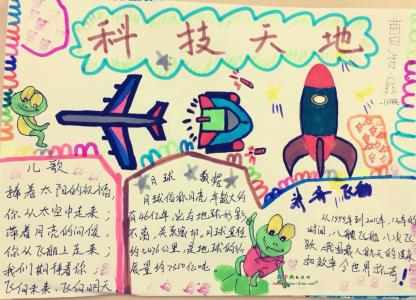 科技天地
儿歌
捧着太阳的祝福,
你从太空中走来;
带着月亮的问候
你从飞船上走来;
我们期待着你,
飞向未来、飞向明天
月球数据
月球俗称月亮,年龄大约
有46亿年,它与地球形影
不离,关系密切,月球直径
约3476公里,是地球的
质量约7350亿吨
神舟飞船
从1999年到2011年,12年的
时间,八艘飞船,八次飞
跃,我国载人航天的速度
和效率令世界惊奇!